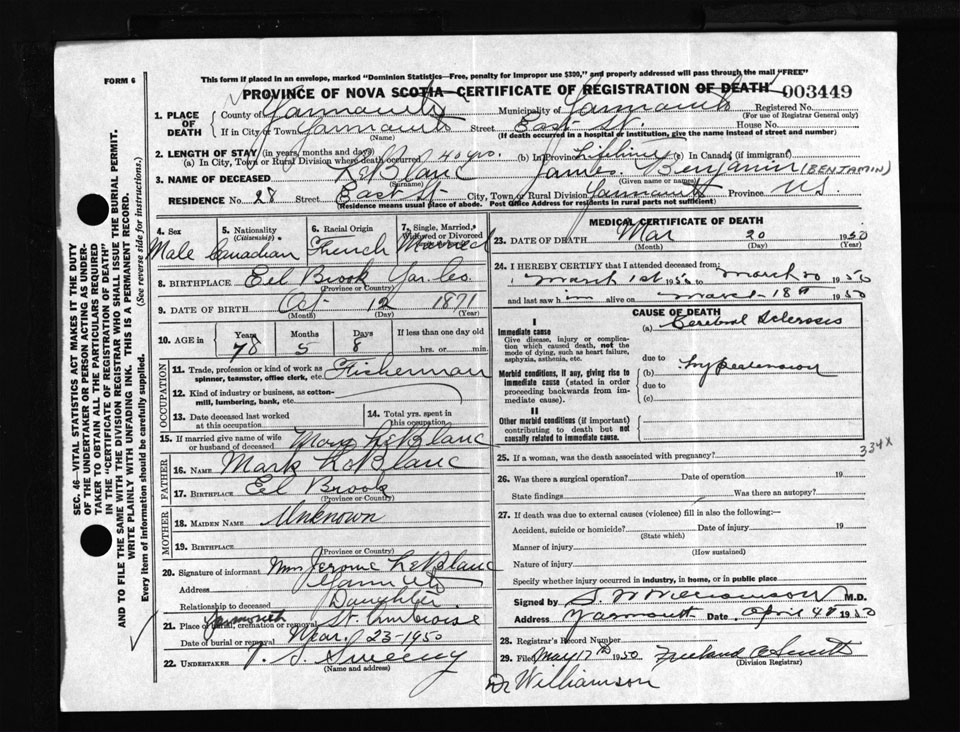 FORM 6
This form if placed in an envelope, marked "Dominion Statistics—Free, penalty for improper use $300," and properly addressed will pass through the mail "FREE"
PROVINCE OF NOVA SCOTIA—CERTIFICATE OF REGISTRATION OF DEATH 003449
1. PLACE OF DEATH
County of Yarmouth Municipality of Yarmouth Registered No.
(For use of Registrar General only)
If in City or Town Yarmouth Street East St. House No.
(Name) (If death occurred in a hospital or institution, give the name instead of street and number)
2. LENGTH OF STAY (in years, months and days)
(a) In City, Town or Rural Division where death occurred 40 yrs. (b) In Province Lifetime (c) In Canada (if immigrant)
3. NAME OF DECEASED LeBlanc James Benjamin (BENJAMIN)
(Surname) (Given name or names)
RESIDENCE No. 28 Street East St City, Town or Rural Division Yarmouth Province N.S.
(Residence means usual place of abode. Post Office Address for residents in rural parts not sufficient)
4. Sex 5. Nationality (Citizenship) 6. Racial Origin 7. Single, Married, Widowed or Divorced
Male Canadian French Married
8. BIRTHPLACE Eel Brook Yar. Co.
(Province or Country)
9. DATE OF BIRTH Oct 12 1871
(Month) (Day) (Year)
10. AGE in Years Months Days If less than one day old
78 5 8 hrs. or min.
OCCUPATION
11. Trade, profession or kind of work as spinner, teamster, office clerk, etc. Fisherman
12. Kind of industry or business, as cotton-mill, lumbering, bank, etc.
13. Date deceased last worked at this occupation
14. Total yrs. spent in this occupation
15. If married give name of wife or husband of deceased Mary LeBlanc
FATHER
16. NAME Mark LeBlanc
17. BIRTHPLACE Eel Brook
(Province or Country)
MOTHER
18. MAIDEN NAME Unknown
19. BIRTHPLACE
(Province or Country)
20. Signature of informant Mrs Jerome LeBlanc
Address Yarmouth
Relationship to deceased Daughter
21. Place of burial, cremation or removal Yarmouth St. Ambroise
Date of burial or removal Mar. 23-1950
22. UNDERTAKER V. S. Sweeny
(Name and address)
MEDICAL CERTIFICATE OF DEATH
23. DATE OF DEATH Mar 20 1950
(Month) (Day) (Year)
24. I HEREBY CERTIFY that I attended deceased from:
March 1st 1950 to March 20 1950
and last saw him alive on March 18th 1950
CAUSE OF DEATH
I
Immediate cause
Give disease, injury or complication which caused death, not the mode of dying, such as heart failure, asphyxia, asthenia, etc.
(a) Cerebral Sclerosis
due to
Morbid conditions, if any, giving rise to immediate cause (stated in order proceeding backwards from immediate cause).
(b) hypertension
due to
(c)
II
Other morbid conditions (if important) contributing to death but not causally related to immediate cause.
334X
25. If a woman, was the death associated with pregnancy?
26. Was there a surgical operation? Date of operation 19
State findings Was there an autopsy?
27. If death was due to external causes (violence) fill in also the following:—
Accident, suicide or homicide? Date of injury 19
(State which)
Manner of injury
(How sustained)
Nature of injury
Specify whether injury occurred in industry, in home, or in public place
Signed by S. W. Williamson M.D.
Address Yarmouth Date April 4th 1950
28. Registrar's Record Number
29. Filed May 17th 1950
(Division Registrar)
Dr Williamson
SEC. 46—VITAL STATISTICS ACT MAKES IT THE DUTY OF THE UNDERTAKER OR PERSON ACTING AS UNDERTAKER TO OBTAIN ALL THE PARTICULARS REQUIRED IN THE "CERTIFICATE OF REGISTRATION OF DEATH" AND TO FILE THE SAME WITH THE DIVISION REGISTRAR WHO SHALL ISSUE THE BURIAL PERMIT.
WRITE PLAINLY WITH UNFADING INK. THIS IS A PERMANENT RECORD.
Every item of information should be carefully supplied. (See reverse side for instructions.)